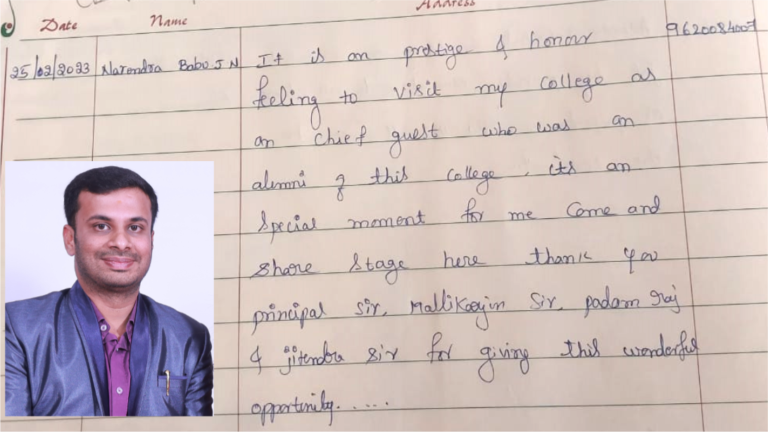 Date Name Address
25/02/2023 Narendra Babu J N It is an prestige & honour 9620084007
feeling to visit my college as
an chief guest who was an
alumni of this college. its an
special moment for me come and
share stage here thank you
principal sir, Mallikarjun sir, padam raj
& jitendra sir for giving this wonderful
opportunity.....